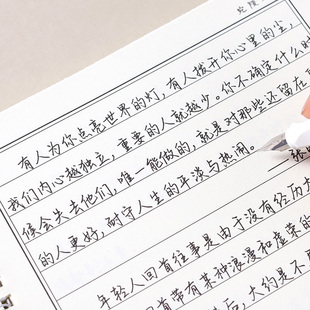 有人为你点亮世界的灯，有人拨开你心里的尘，
我们内心越独立，重要的人就越少。你不确定什么时
候会失去他们，唯一能做的，就是对那些还留在
的人更好，耐守人生的平淡与热闹。
年轻人回首往事是由于没有经历
回首带有某种浪漫和虚荣的
后，大约是不